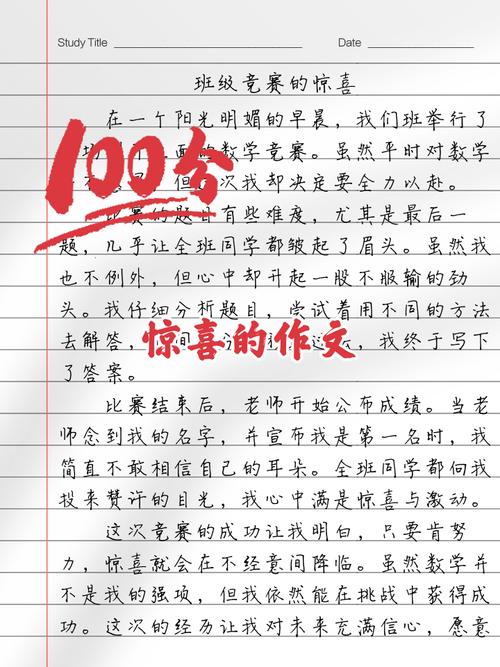 Study Title
Date
班级竞赛的惊喜
在一个阳光明媚的早晨，我们班举行了
面的数学竞赛。虽然平时对数学
但 次我却决定要全力以赴。
100分
比赛的题目有些难度，尤其是最后一
题，几乎让全班同学都皱起了眉头。虽然我
也不例外，但心中却升起一股不服输的劲
头。我仔细分析题目，尝试着用不同的方法
去解答， 我终于写下
惊喜的作文
了答案。
比赛结束后，老师开始公布成绩。当老
师念到我的名字，并宣布我是第一名时，我
简直不敢相信自己的耳朵。全班同学都向我
投来赞许的目光，我心中满是惊喜与激动。
这次竞赛的成功让我明白，只要肯努
力，惊喜就会在不经意间降临。虽然数学并
不是我的强项，但我依然能在挑战中获得成
功。这次的经历让我对未来充满信心，愿意